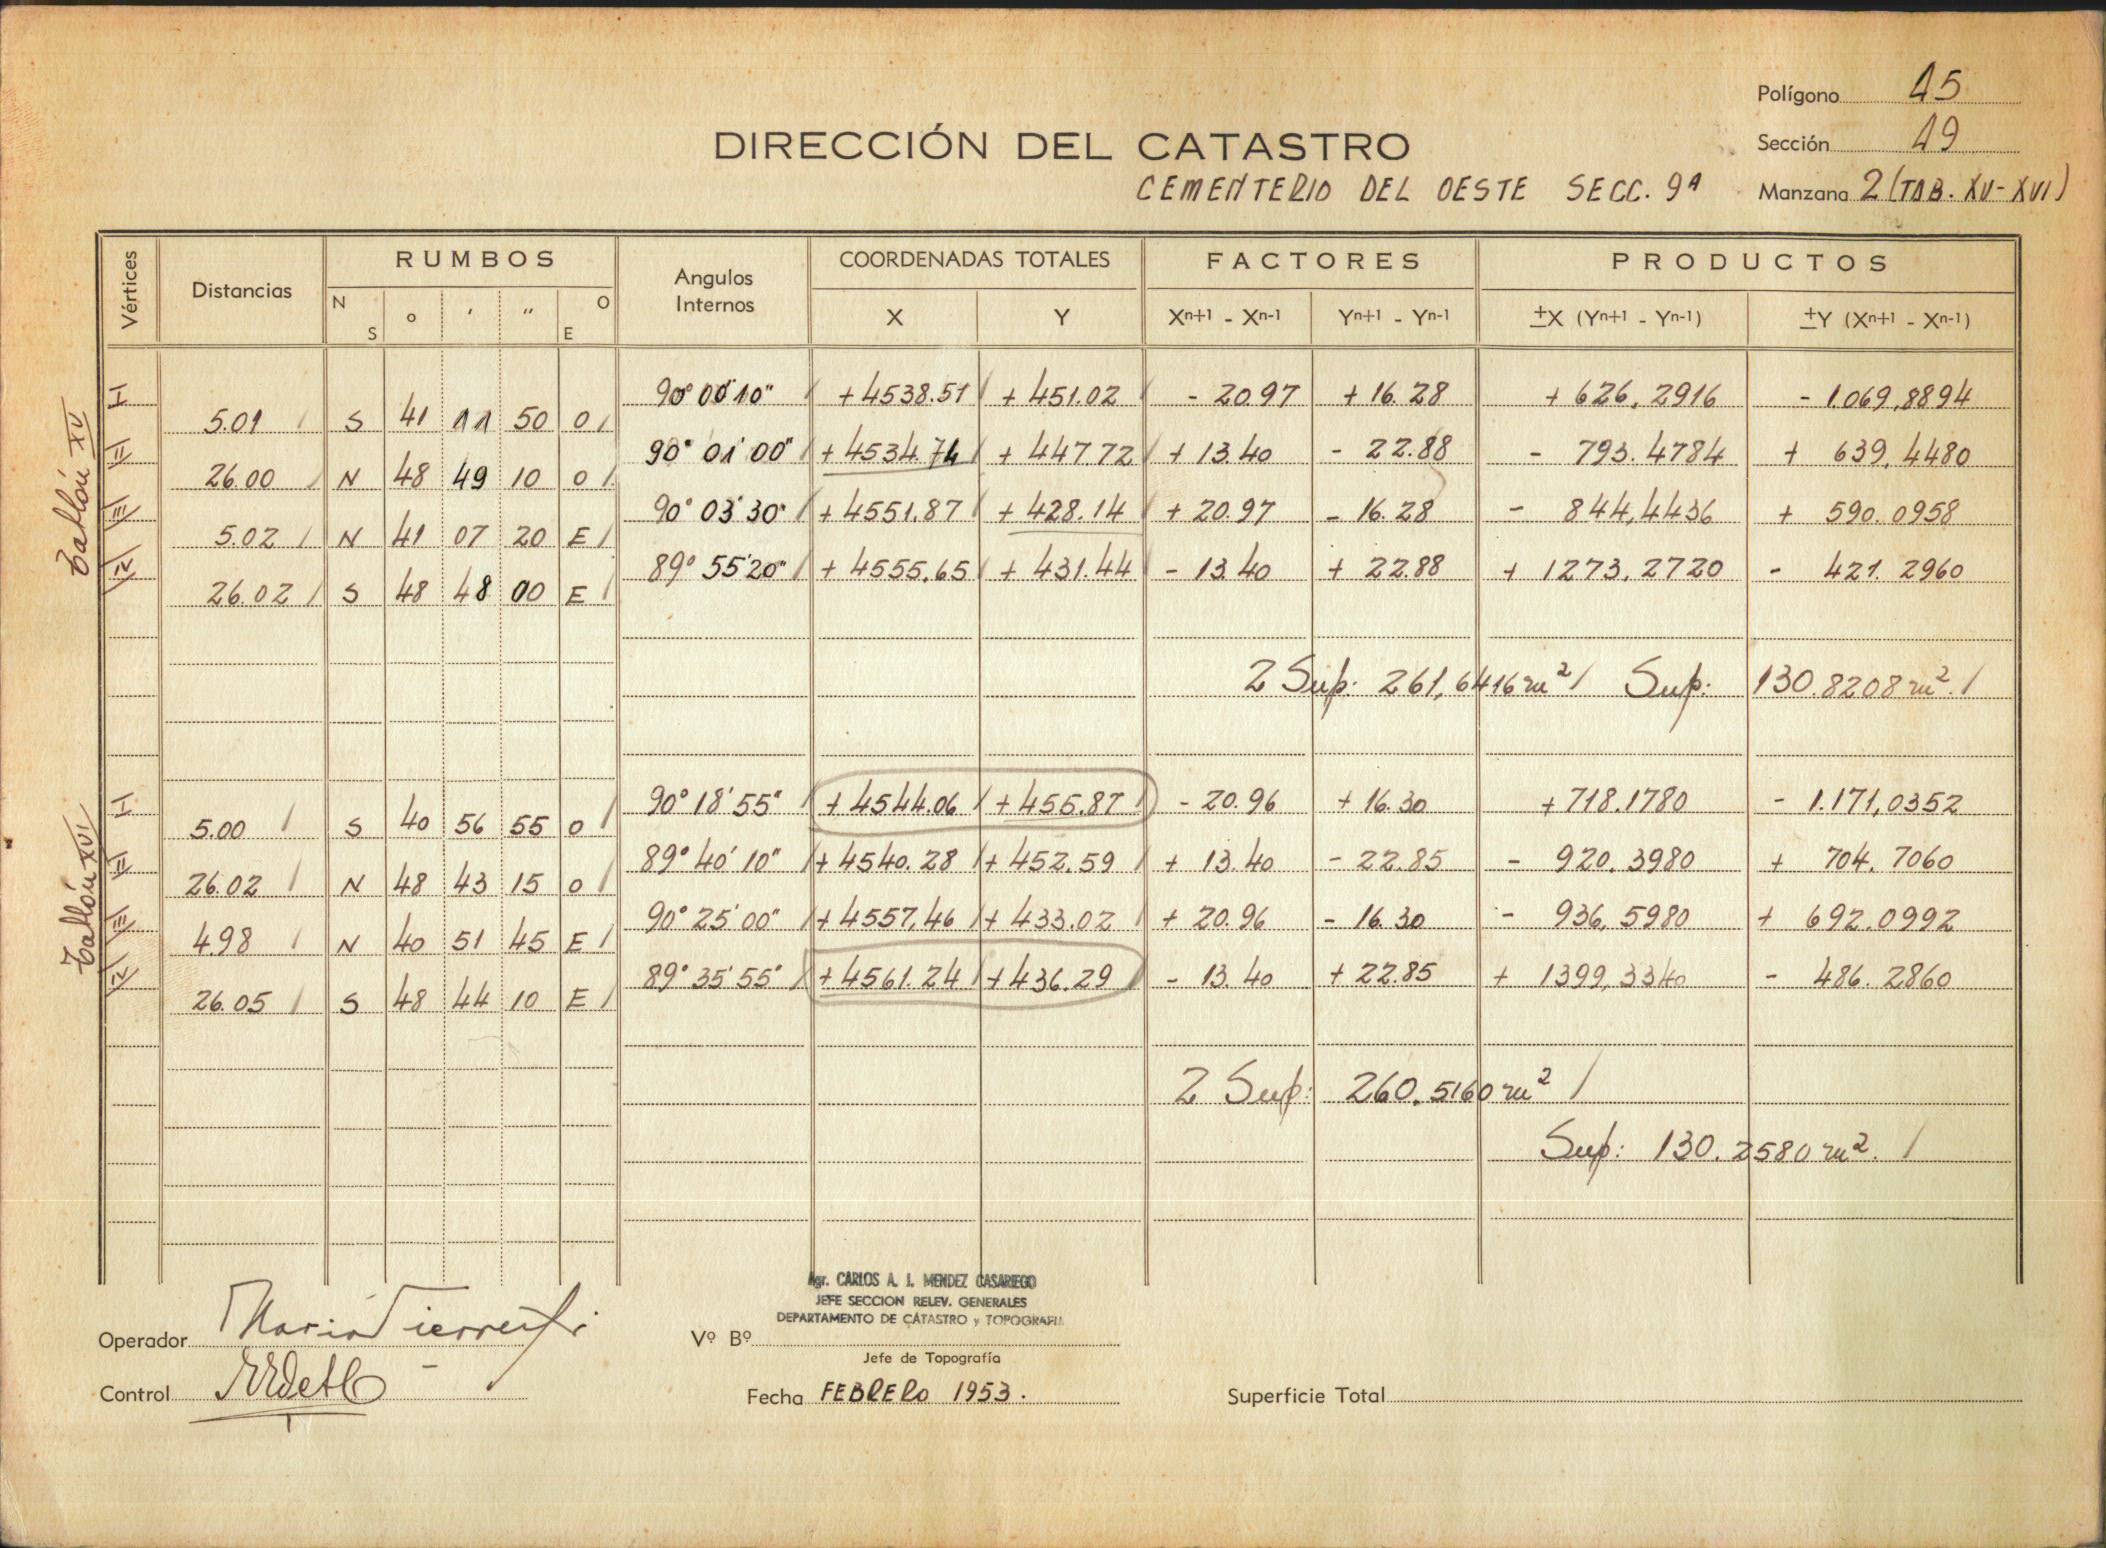 Polígono 15
DIRECCIÓN DEL CATASTRO
Sección 19
CEMENTERIO DEL OESTE SECC. 9ª
Manzana 2 (TAB. XV-XVI)
Vértices Distancias RUMBOS Angulos Internos COORDENADAS TOTALES FACTORES PRODUCTOS
N S ° ' " O E X Y Xn+1 - Xn-1 Yn+1 - Yn-1 ±X (Yn+1 - Yn-1) ±Y (Xn+1 - Xn-1)
Tablón XV
I 90° 00' 10" +4538.51 +451.02 - 20.97 +16.28 +626,2916 - 1.069,8894
5.01 S 41 11 50 O
II 90° 01' 00" +4534.74 +447.72 +13.40 - 22.88 - 793.4784 + 639,4480
26.00 N 48 49 10 O
III 90° 03' 30" +4551.87 +428.14 +20.97 - 16.28 - 844,4436 + 590.0958
5.02 N 41 07 20 E
IV 89° 55' 20" +4555.65 +431.44 - 13.40 +22.88 +1273.2720 - 421.2960
26.02 S 48 48 00 E
2 Sup: 261,6416 m² Sup: 130.8208 m².
Tablón XVI
I 90° 18' 55" +4544.06 +455.87 - 20.96 +16.30 +718.1780 - 1.171,0352
5.00 S 40 56 55 O
II 89° 40' 10" +4540.28 +452.59 +13.40 - 22.85 - 920.3980 + 704.7060
26.02 N 48 43 15 O
III 90° 25' 00" +4557,46 +433.02 +20.96 - 16.30 - 936,5980 + 692.0992
4.98 N 40 51 45 E
IV 89° 35' 55" +4561.24 +436.29 - 13.40 +22.85 +1399,3340 - 486.2860
26.05 S 48 44 10 E
2 Sup: 260.5160 m²
Sup: 130.2580 m².
Agr. CARLOS A. I. MENDEZ CASARIEGO
JEFE SECCION RELEV. GENERALES
DEPARTAMENTO DE CATASTRO y TOPOGRAFIA
Operador
Vº Bº
Jefe de Topografía
Control
Fecha FEBRERO 1953.
Superficie Total